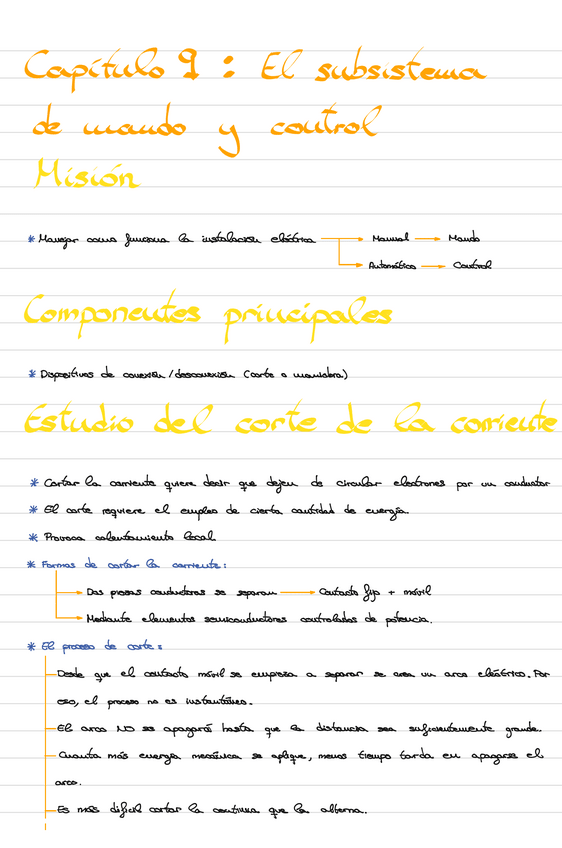 Capítulo 9 : El subsistema
de mando y control
Misión
* Manejar como funciona la instalación eléctrica → Manual → Mando
→ Automático → Control
Componentes principales
* Dispositivos de conexión / desconexión (corte o maniobra)
Estudio del corte de la corriente
* Cortar la corriente quiere decir que dejen de circular electrones por un conductor
* El corte requiere el empleo de cierta cantidad de energía.
* Provoca calentamiento local
* Formas de cortar la corriente:
→ Dos piezas conductoras se separan → Contacto fijo + móvil
→ Mediante elementos semiconductores controlados de potencia.
* El proceso de corte:
Desde que el contacto móvil se empieza a separar se crea un arco eléctrico. Por
eso, el proceso no es instantáneo.
El arco NO se apagará hasta que la distancia sea suficientemente grande.
Cuanta más energía mecánica se aplique, menos tiempo tarda en apagarse el
arco.
Es más difícil cortar la continua que la alterna.